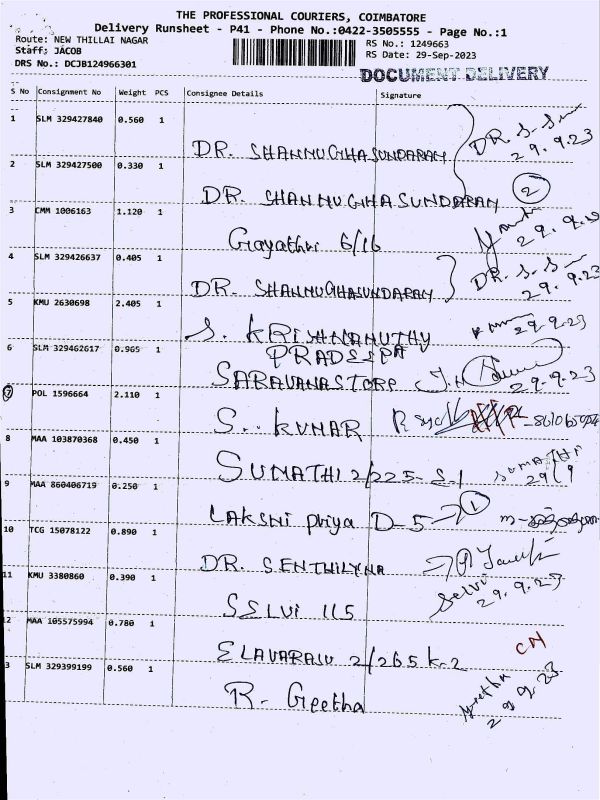 THE PROFESSIONAL COURIERS, COIMBATORE
Delivery Runsheet - P41 - Phone No.:0422-3505555 - Page No.:1
Route: NEW THILLAI NAGAR RS No.: 1249663
Staff: JACOB RS Date: 29-Sep-2023
DRS No.: DCJB124966301
DOCUMENT DELIVERY
S No Consignment No Weight PCS Consignee Details Signature
1 SLM 329427840 0.560 1
DR. SHANMUGHASUNDARAM DR. S. 29.9.23
2 SLM 329427500 0.330 1
DR. SHANMUGHASUNDARAM 2
3 CMM 1006163 1.120 1
Gayathri 6/16 29.9.
4 SLM 329426637 0.405 1
DR. SHANMUGHASUNDARAM DR. S. 29.9.23
5 KMU 2630698 2.405 1
S. KRISHNAMUTHY 29.9.23
6 SLM 329462617 0.965 1
PRADEEPA
SARAVANA STORE 29.9.23
7 POL 1596664 2.110 1
S.. KUMAR
8 MAA 103870368 0.450 1
SUMATHI 2/225-S-1 SUMATHI 29/9
9 MAA 860406719 0.250 1
LAKSHI priya D-5 1
10 TCG 15078122 0.890 1
DR. SENTHILYNA
11 KMU 3380860 0.390 1
SELVI 115 Selvi 29.9.23
12 MAA 105575994 0.780 1
ELAVARASU 2/265 K-2 CN
3 SLM 329399199 0.560 1
R. Geetha Geetha 29.9.23